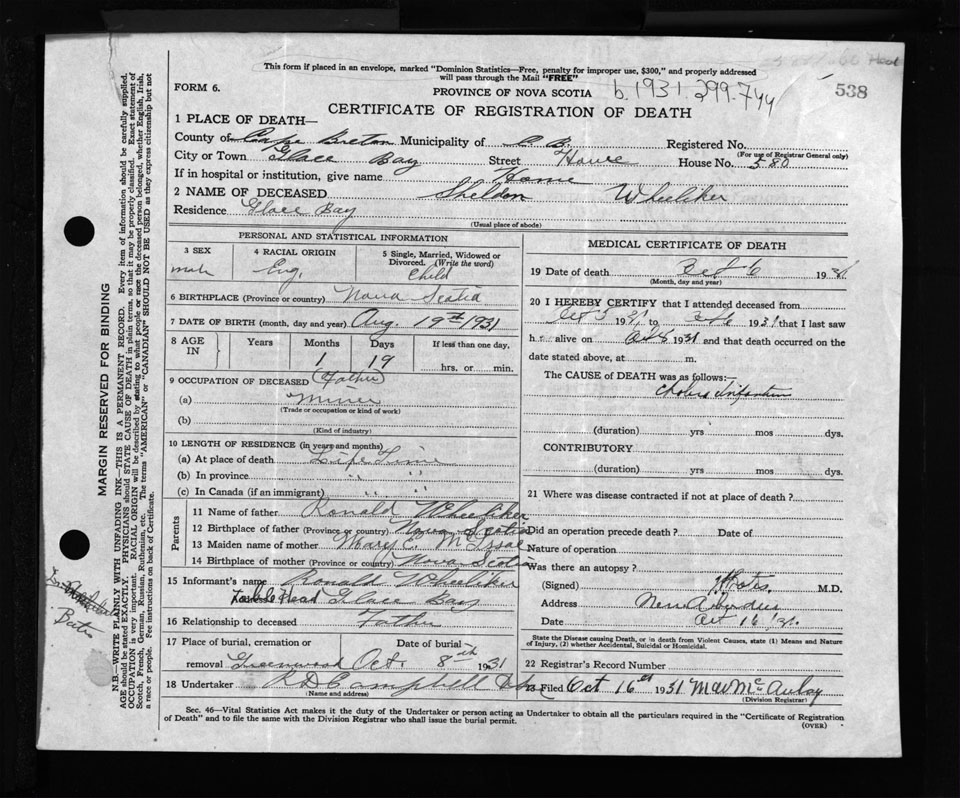 This form if placed in an envelope, marked "Dominion Statistics—Free, penalty for improper use, $300," and properly addressed
will pass through the Mail "FREE"
FORM 6.
PROVINCE OF NOVA SCOTIA b.1931 299.744 538
CERTIFICATE OF REGISTRATION OF DEATH
1 PLACE OF DEATH—
County of Cape Breton Municipality of C.B. Registered No.
(For use of Registrar General only)
City or Town Glace Bay Street Howe House No. 580
If in hospital or institution, give name Home
2 NAME OF DECEASED Sheldon Wheeliker
Residence Glace Bay
(Usual place of abode)
PERSONAL AND STATISTICAL INFORMATION
3 SEX male
4 RACIAL ORIGIN Eng.
5 Single, Married, Widowed or Divorced. (Write the word) Child
6 BIRTHPLACE (Province or country) Nova Scotia
7 DATE OF BIRTH (month, day and year) Aug. 19th 1931
8 AGE IN Years Months Days If less than one day,
1 19 hrs. or min.
9 OCCUPATION OF DECEASED (Father)
(a) Miner
(Trade or occupation or kind of work)
(b)
(Kind of industry)
10 LENGTH OF RESIDENCE (in years and months)
(a) At place of death Life Time
(b) In province " "
(c) In Canada (if an immigrant) " "
Parents
11 Name of father Ronald Wheeliker
12 Birthplace of father (Province or country) Nova Scotia
13 Maiden name of mother Mary C. McIssac
14 Birthplace of mother (Province or country) Nova Scotia
15 Informant's name Ronald Wheeliker
Table Head Glace Bay
16 Relationship to deceased Father
17 Place of burial, cremation or Date of burial
removal Greenwood Oct. 8th 1931
18 Undertaker R D Campbell
(Name and address)
MEDICAL CERTIFICATE OF DEATH
19 Date of death Oct 6 1931
(Month, day and year)
20 I HEREBY CERTIFY that I attended deceased from
Oct 5 1931 to Oct 6 1931 that I last saw
h alive on Oct 1931 and that death occurred on the
date stated above, at m.
The CAUSE of DEATH was as follows:—
Cholera Infantum
(duration) yrs mos dys.
CONTRIBUTORY
(duration) yrs mos dys.
21 Where was disease contracted if not at place of death?
Did an operation precede death? Date of
Nature of operation
Was there an autopsy?
(Signed) M.D.
Address New Aberdeen
Date Oct 16 31
State the Disease causing Death, or in death from Violent Causes, state (1) Means and Nature
of Injury, (2) whether Accidental, Suicidal or Homicidal.
22 Registrar's Record Number
23 Filed Oct 16th 1931 May McAulay
(Division Registrar)
Sec. 46—Vital Statistics Act makes it the duty of the Undertaker or person acting as Undertaker to obtain all the particulars required in the "Certificate of Registration
of Death" and to file the same with the Division Registrar who shall issue the burial permit.
(OVER)
MARGIN RESERVED FOR BINDING
N.B.—WRITE PLAINLY WITH UNFADING INK—THIS IS A PERMANENT RECORD. Every item of information should be carefully supplied.
AGE should be stated EXACTLY. PHYSICIANS should STATE CAUSE OF DEATH in plain terms, so that it may be properly classified. Exact statement of
OCCUPATION is very important. RACIAL ORIGIN will be described by stating to what people or race the deceased person belonged, whether English, Irish,
Scotch, French, German, Russian, Ruthenian, etc. The terms "AMERICAN" or "CANADIAN" SHOULD NOT BE USED as they express citizenship but not
a race or people. Fee instructions on back of Certificate.